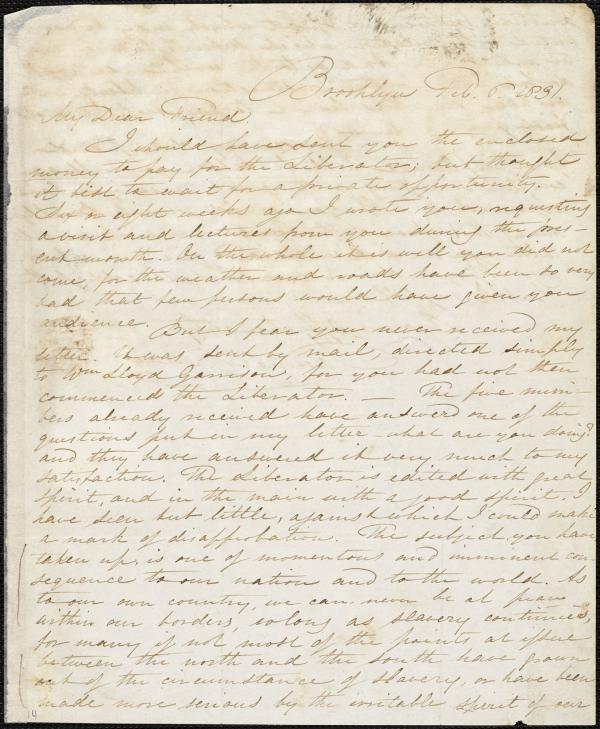 Brooklyn Feb. 6. 1831.
My Dear Friend.
I should have sent you the enclosed
money to pay for the Liberator; but thought
it best to wait for a private opportunity.
Six or eight weeks ago I wrote you, requesting
a visit and lectures from you during the pres-
ent month. On the whole it is well you did not
come, for the weather and roads have been so very
bad that few persons would have given you
audience. But I fear you never received my
letter. It was sent by mail, directed simply
to Wm Lloyd Garrison, for you had not then
commenced the Liberator. — The five num-
bers already received have answerd one of the
questions put in my letter what are you doing?
and they have answered it very much to my
satisfaction. The Liberator is edited with great
spirit, and in the main with a good spirit. I
have seen but little, against which I could make
a mark of disapprobation. The subject you have
taken up, is one of momentous and imminent con
sequence to our nation and to the world. As
to our own country, we can never be at peace
within our borders, so long as slavery continues,
for many if not most of the points at issue
between the north and the south have grown
out of the circumstance of slavery, or have been
made more serious by the irritable spirit of our
14